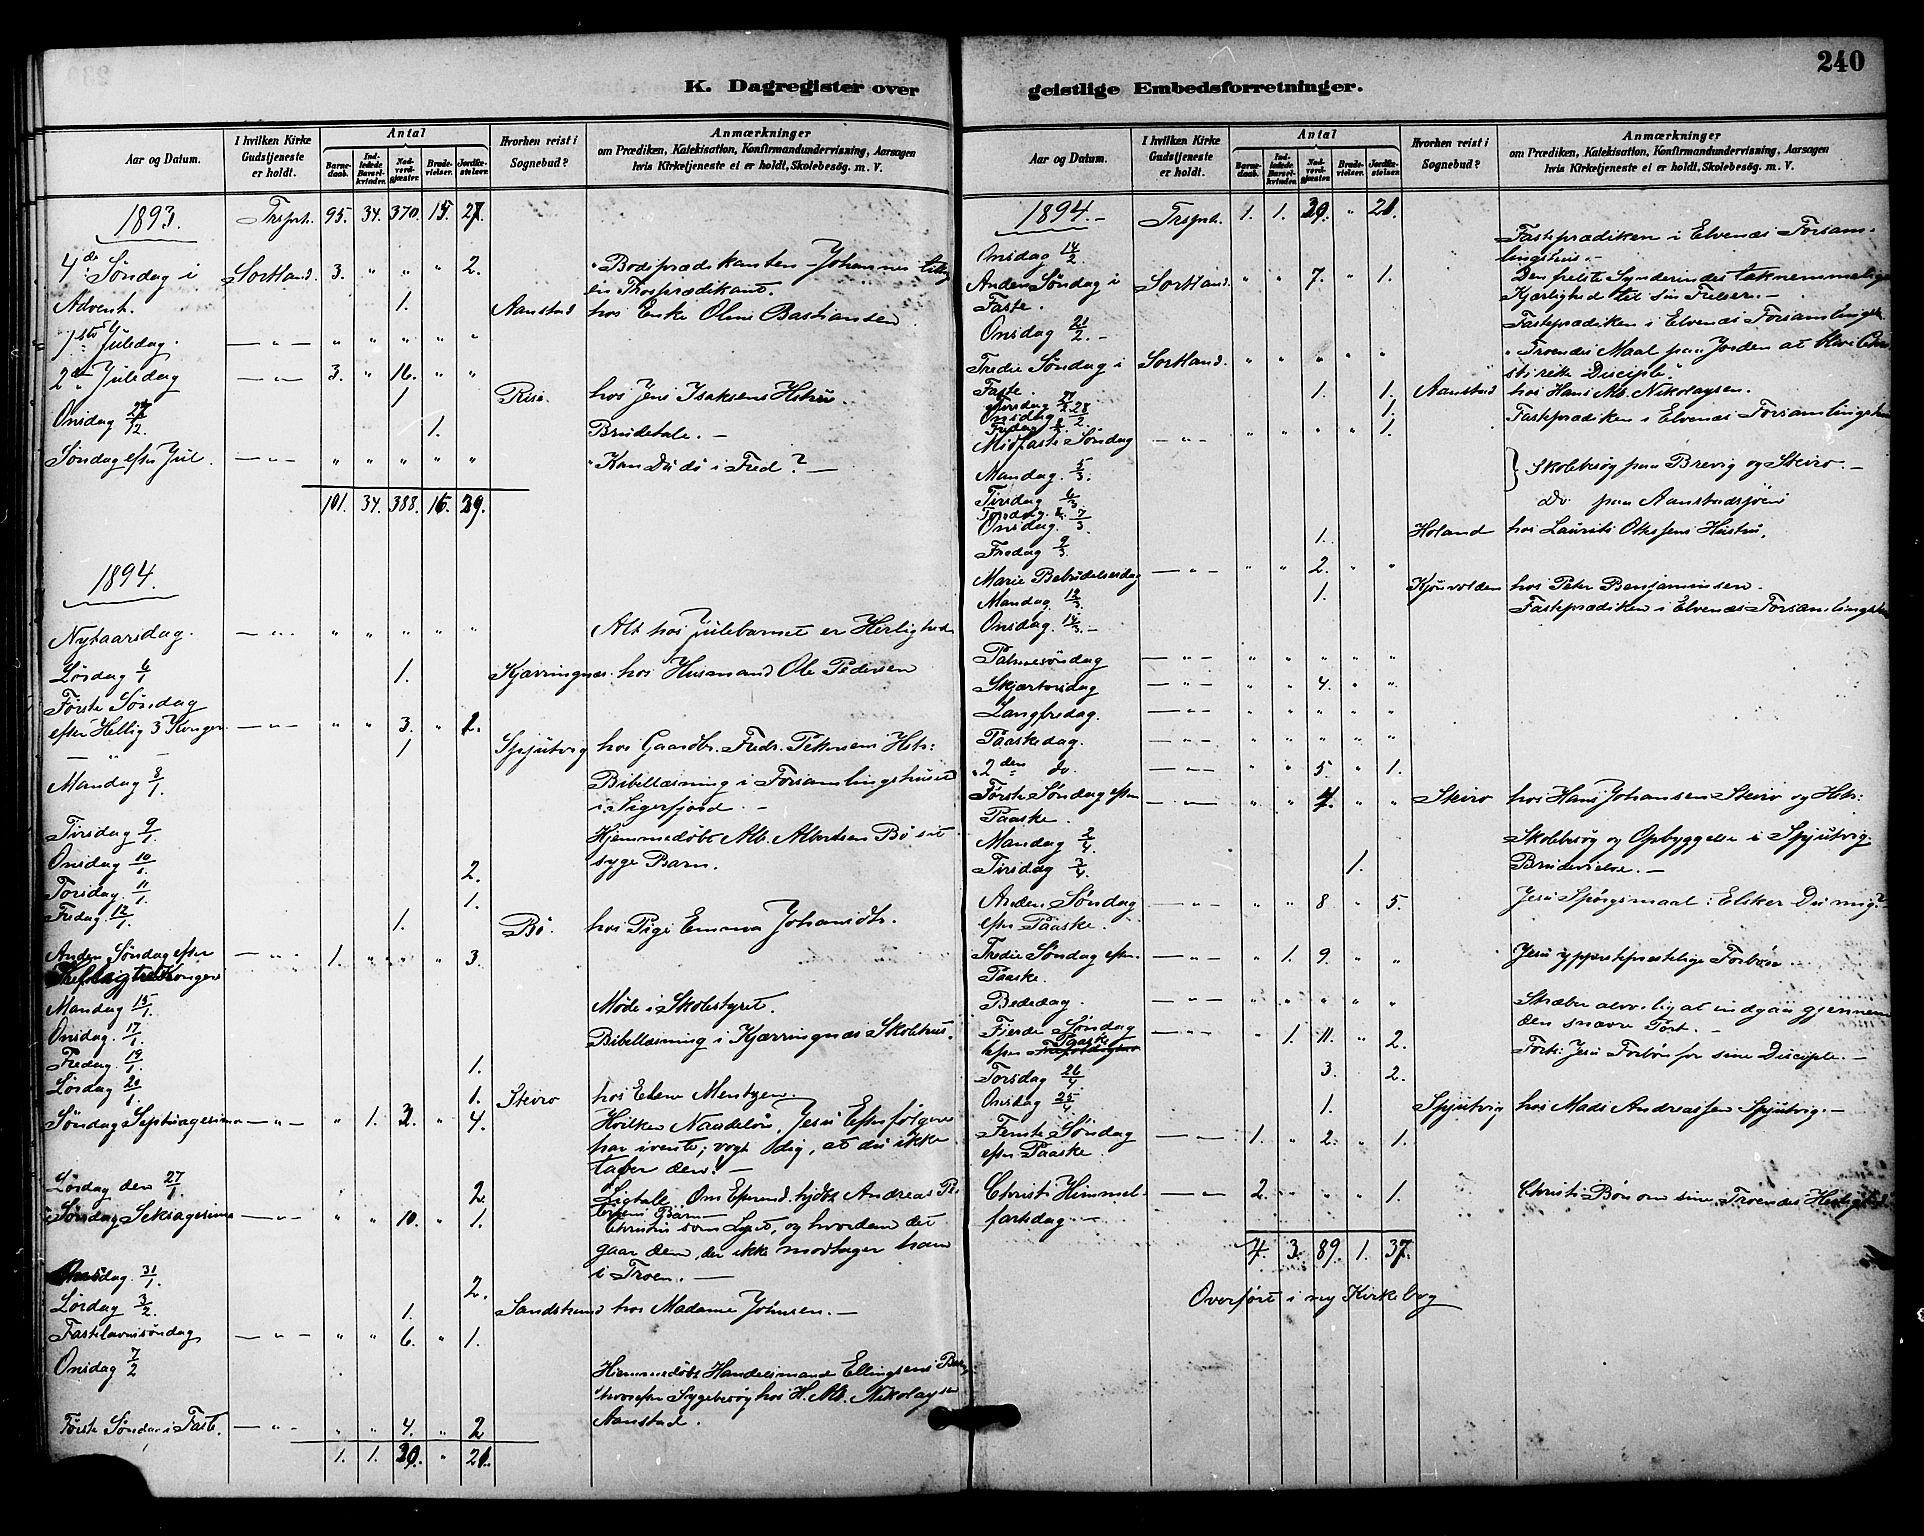 240
K. Dagregister over
geistlige Embedsforretninger.
Aar og Datum.
I hvilken Kirke Gudstjeneste er holdt.
Antal
Barnedaab.
Indledede Barselkvinder.
Nadverdgjæster.
Brudevielser.
Jordfæstelser.
Hvorhen reist i Sognebud?
Anmærkninger
om Prædiken, Katekisation, Konfirmandundervisning, Aarsagen
hvis Kirketjeneste ei er holdt, Skolebesøg m. V.
1893. Trsprt. 95. 34. 370. 15. 27.
4de Søndag i Sortland. 3. " " " 2. "Bodsprædikanten Johannes
Advent. en Trosprædikant.
1. Aanstad hos Enke Oline Bastiansen
1ste Juledag. — " — " " " " "
2den Juledag — " — 3. " 16. " "
1 Risø. hos Jens Isaksens Hstru.
Onsdag 27/12. 1. Brudetale. —
Søndag efter Jul. — " — " " " " " "Kan Du dø i Fred? —
101. 34. 388. 16. 29.
1894.
Nytaarsdag. — " — " " " " " Alt hos Julebarnet er Herlighed
Lørdag 6/1 1. Kjærringnes. hos Husmand Ole Pedersen
Første Søndag
efter Hellig 3 Konger — " — " " 3. " 2.
— " 1 Spjutvig hos Gaardbr. Fredr. Petersens Hstr:
Mandag 8/1 Bibellæsning i Forsamlingshuset
i Sigerfjord. —
Tirsdag 9/1 Hjemmedøbt Alb. Albertsen Bø sit
Onsdag 10/1. 2. syge Barn.
Torsdag 11/1. 1.
Fredag 12/1. 1. Bø. hos Pige Emma Johansdtr.
Anden Søndag efter — " — 1. " " " 3.
Konger
Mandag 15/1. Møde i Skolestyret.
Onsdag 17/1. Bibellæsning i Kjærringnes Skolehus.
Fredag 19/1. 1.
Lørdag 20/1. 1. Steiro hos Elene Mentzen.
Søndag Septuagesima — " — " 1. 3. " 4. Hvilken Naadeløn, Jesu Efterfølgere
har ivente; vogt dig, at du ikke
taber den! —
Lørdag den 27/1. 2 Ligtale Om Andreas
Søndag Seksagesima — " — " " 10. " 1. Barn —
Christus som Lyset, og hvordan det
gaar dem, der ikke modtager ham
i Troen. —
Onsdag 31/1. 2.
Lørdag 3/2. 1. Sandstrand hos Madame Johnsen. —
Fastelavnssøndag — " — " " 6. " 1.
Onsdag 7/2 Hjemmedøbt Handelsmand Ellingsens Barn,
hvorefter Sygebesøg hos H. Alb. Nikolaysen
Aanstad.
Første Søndag i Faste. — " — " " 4. " 2
1. 1. 30. " 21.
1894. — Trsprt. 1. 1. 30. " 21.
Onsdag 14/2 Fasteprædiken i Elvenes Forsam-
lingshus. —
Anden Søndag i Sortland. " " 7. " 1. Den frelste Synderindes taknemmelige
Faste. Kjærlighed til sin Frelser. —
Onsdag 21/2. — Fasteprædiken i Elvenes Forsamlingsh.
Tredie Søndag i Sortland. " " " " " "Troendes Maal paa Jorden at blive Chri-
Faste sti rette Disciple."
Tirsdag 27/2 1. 1. Aanstad hos Hans Alb. Nikolaysen.
Onsdag 28/2. 1. Fasteprædiken i Elvenes Forsamlingshus
Midfaste Søndag — " — " " " " 1.
Mandag. 5/3. } Skolebesøg paa Brevig og Steiro. —
Tirsdag 6/3
Onsdag. 7/3. Do paa Aanstadsjøen
Fredag 9/3. 1. Holand hos Laurits Hustru.
Marie Bebudelsesdag — " — " " 2. " "
Mandag 12/3. 1. Kjørvolden hos Peter Benjaminsen.
Onsdag. 14/3. — Fasteprædiken i Elvenes Forsamlingshus
Palmesøndag — " — " " " " "
Skjærtorsdag — " — " " 4. " "
Langfredag. — " — " " " " "
Paaskedag. — " — " " " " "
2den do. — " — " " 5. " 1.
Første Søndag efter — " — " " 4. " " Steiro hos Hans Johansen Steiro og Hstr:
Paaske.
Mandag 2/4. Skolebesøg og Opbyggelse i Spjutvig
Tirsdag 3/4. 1. Brudevielse. —
Anden Søndag — " — " " 8 " 5. Jesu Spørgsmaal: Elsker Du mig? —
efter Paaske.
Tredie Søndag efter — " — " 1. 9. " " Jesu ypperstepræstelige Forbøn
Paaske.
Bededag. — " — " " " " " Stræber alvorlig at indgaa gjennem
den snævre Port. —
Fierde Søndag — " — " 1. 11. " 2. Forts: Jesu Forbøn for sine Disciple. —
efter Paaske
Torsdag 26/4. 3. 2.
Onsdag 25/4. 1. Spjutvig hos Mads Andreassen Spjutvig. —
Femte Søndag — " — 1. " 2. " 1.
efter Paaske.
Christi Himmel- — " — 2. " " " 1. Christi Bøn om sine Troendes Herlighed
fartsdag. —
4. 3. 89. 1. 37.
Overført i ny Kirkebog